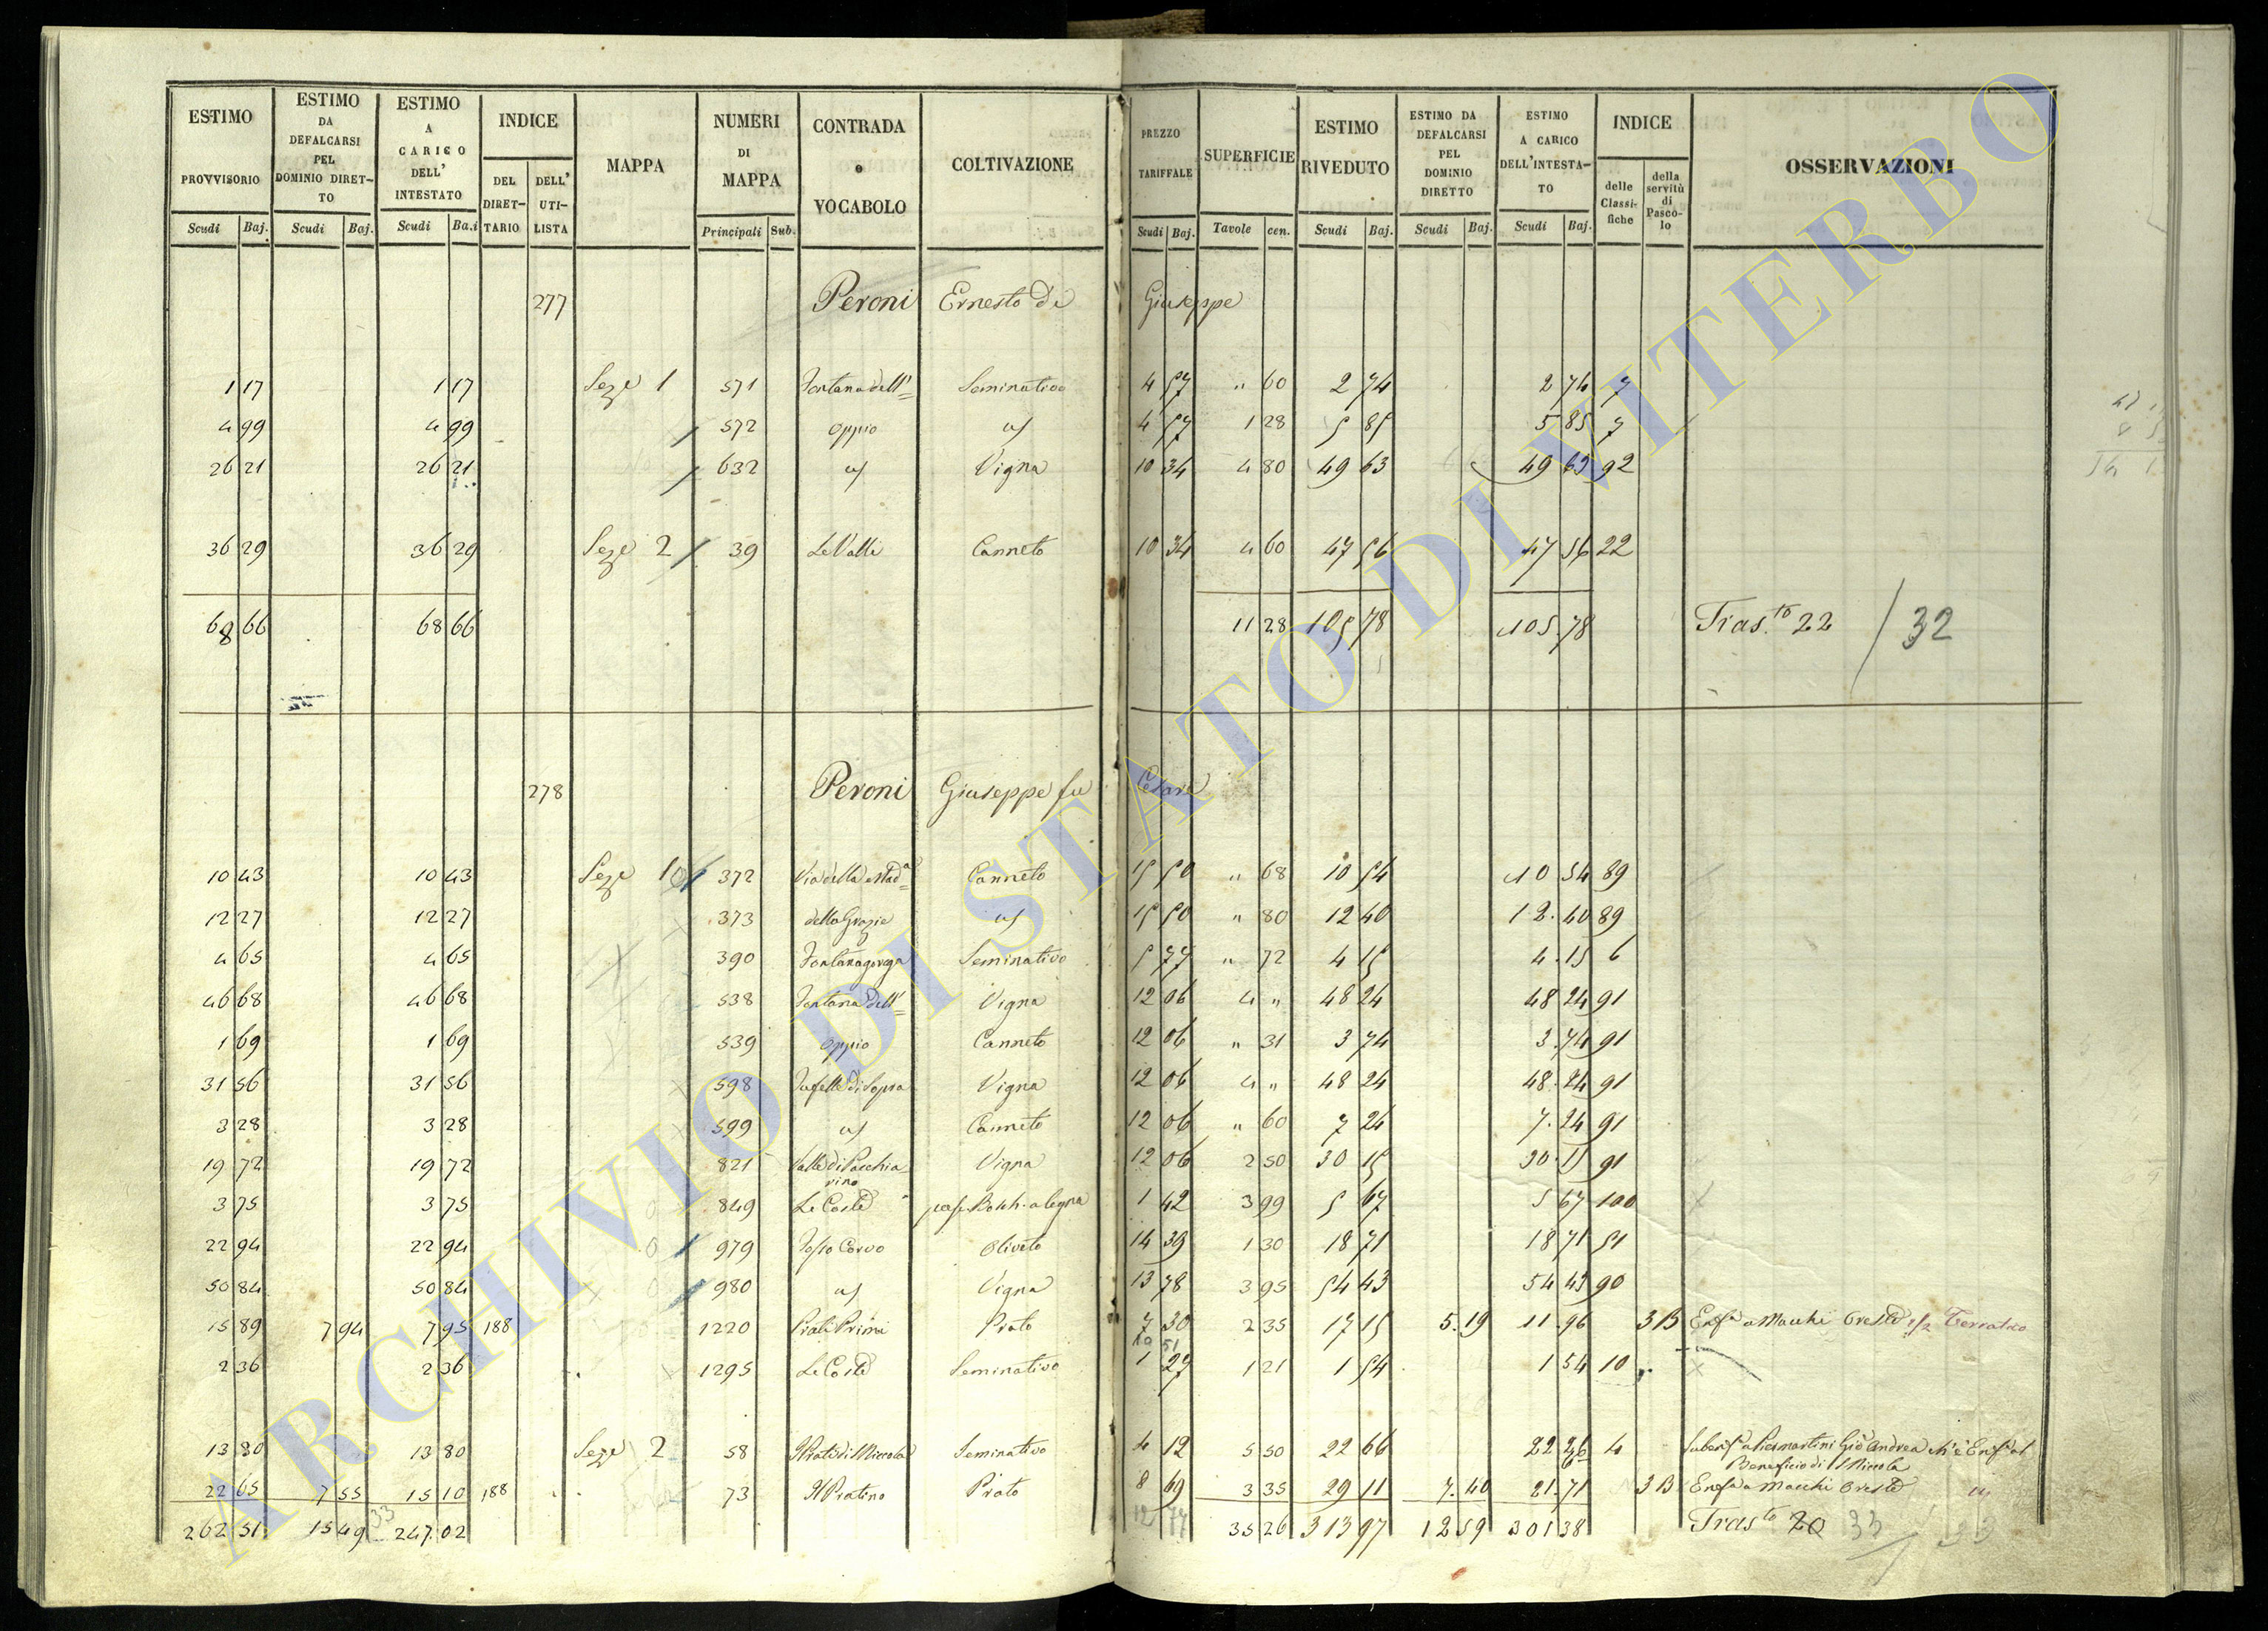 ESTIMO PROVVISORIO Scudi Baj.
ESTIMO DA DEFALCARSI PEL DOMINIO DIRET- TO Scudi Baj.
ESTIMO A CARICO DELL' INTESTATO Scudi Ba.i
INDICE DEL DIRET- TARIO DELL' UTI- LISTA
MAPPA
NUMERI DI MAPPA Principali Sub.
CONTRADA e VOCABOLO
COLTIVAZIONE
PREZZO TARIFFALE Scudi Baj.
SUPERFICIE Tavole cen.
ESTIMO RIVEDUTO Scudi Baj.
ESTIMO DA DEFALCARSI PEL DOMINIO DIRETTO Scudi Baj.
ESTIMO A CARICO DELL'INTESTA- TO Scudi Baj.
INDICE delle Classi- fiche della servitù di Pasco- lo
OSSERVAZIONI
277 Peroni Ernesto di Giuseppe
1 17 1 17 Seze 1 571 Fontana dell' Seminativo 4 57 " 60 2 74 2 74 7
4 99 4 99 572 oppio us 4 57 1 28 5 85 5 85 7
26 21 26 21 632 us Vigna 10 34 4 80 49 63 49 63 92
36 29 36 29 Seze 2 39 Le Valli Canneto 10 34 4 60 47 56 47 56 22
68 66 68 66 11 28 105 78 105.78 Tras.to 22 / 32
278 Peroni Giuseppe fu Cesare
10 43 10 43 Seze 1 372 Via della Mad.a Canneto 15 50 " 68 10 54 10 54 89
12 27 12 27 373 delle Grazie us 15 50 " 80 12 40 12.40 89
4 65 4 65 390 Seminativo 5 77 " 72 4 15 4.15 6
46 68 46 68 538 Fontana dell' Vigna 12 06 4 " 48 24 48 24 91
1 69 1 69 539 oppio Canneto 12 06 " 31 3 74 3.74 91
31 56 31 56 598 di Sopra Vigna 12 06 4 " 48 24 48.24 91
3 28 3 28 599 us Canneto 12 06 " 60 7 24 7.24 91
19 72 19 72 821 Valle di Pacchia Vigna 12 06 2 50 30 15 30.15 91
rino
3 75 3 75 849 Le Coste a legna 1 42 3 99 5 67 5 67 100
22 94 22 94 979 Fosso Corvo Oliveto 14 39 1 30 18 71 18 71 51
50 84 50 84 980 us Vigna 13 78 3 95 54 43 54 43 90
15 89 7 94 7 95 188 1220 Prati Primi Prato 7 30 2 35 17 15 5.19 11.96 3 B Enf.a a Macchi Oreste 1/2
2 36 2 36 1295 Le Coste Seminativo 1 27 1 21 1 54 1 54 10
13 80 13 80 Seze 2 58 Seminativo 4 12 5 50 22 66 4 a Piermartini Gio Andrea
Beneficio di S Niccola
22 65 7 55 15 10 188 73 Il Pratino Prato 8 69 3 35 29 11 7.40 21.71 3 B Enf.a a Macchi Oreste
262 51 15 49 247.02 35 26 313 97 12 59 301 38 Tras.to 20 33
ARCHIVIO DI STATO DI VITERBO